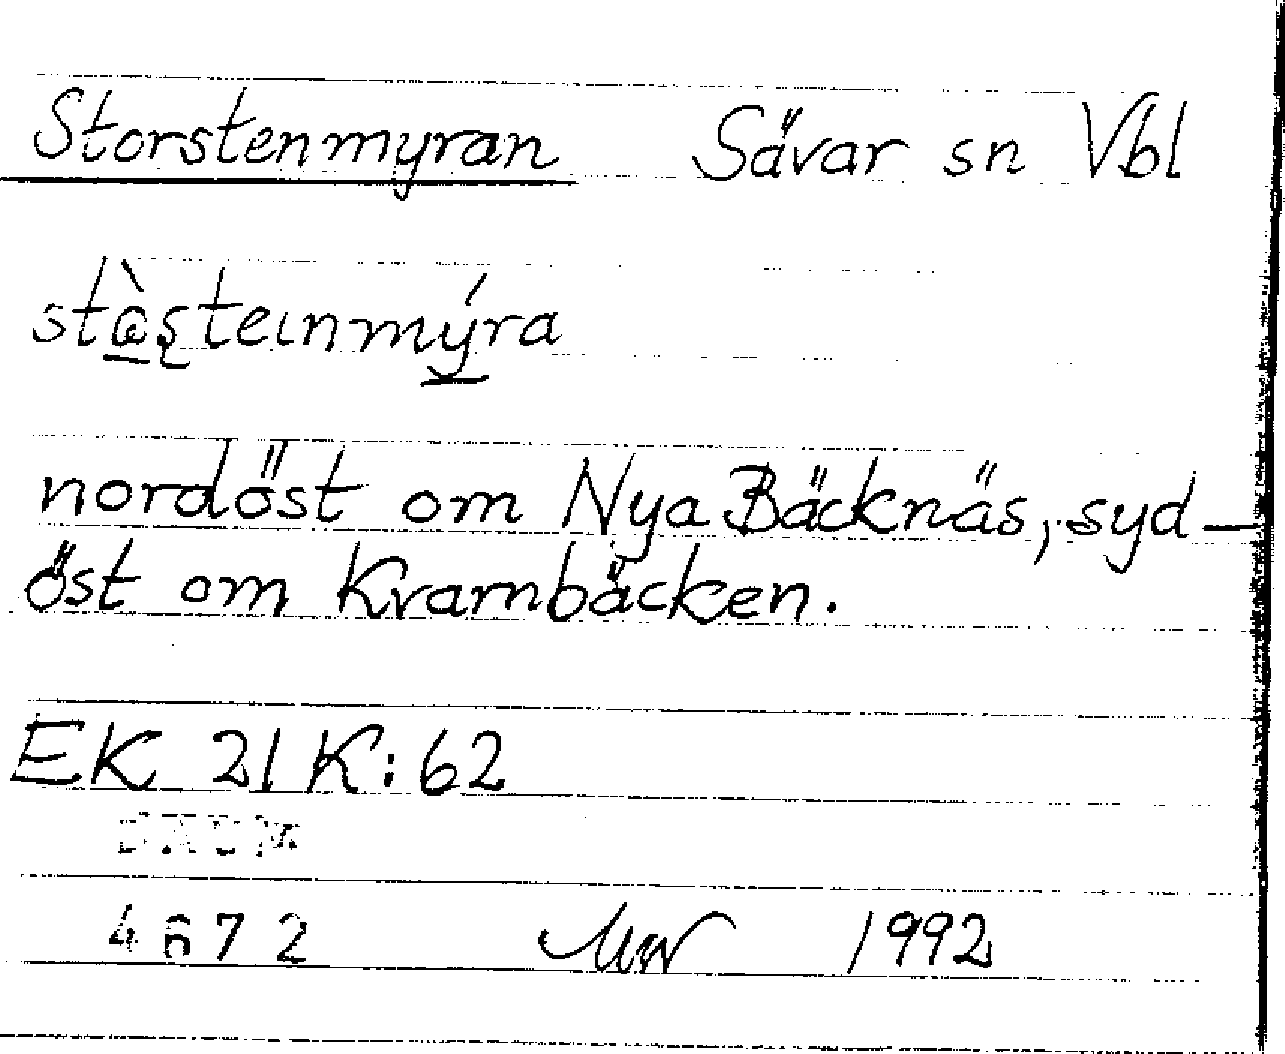 Storstenmyran Sävar sn Vbl
stò̱ʂteınmý̱ra
nordöst om Nya Bäcknäs, syd-
öst om Kvarnbäcken.
EK 21 K:62
DAUM
4672 1992